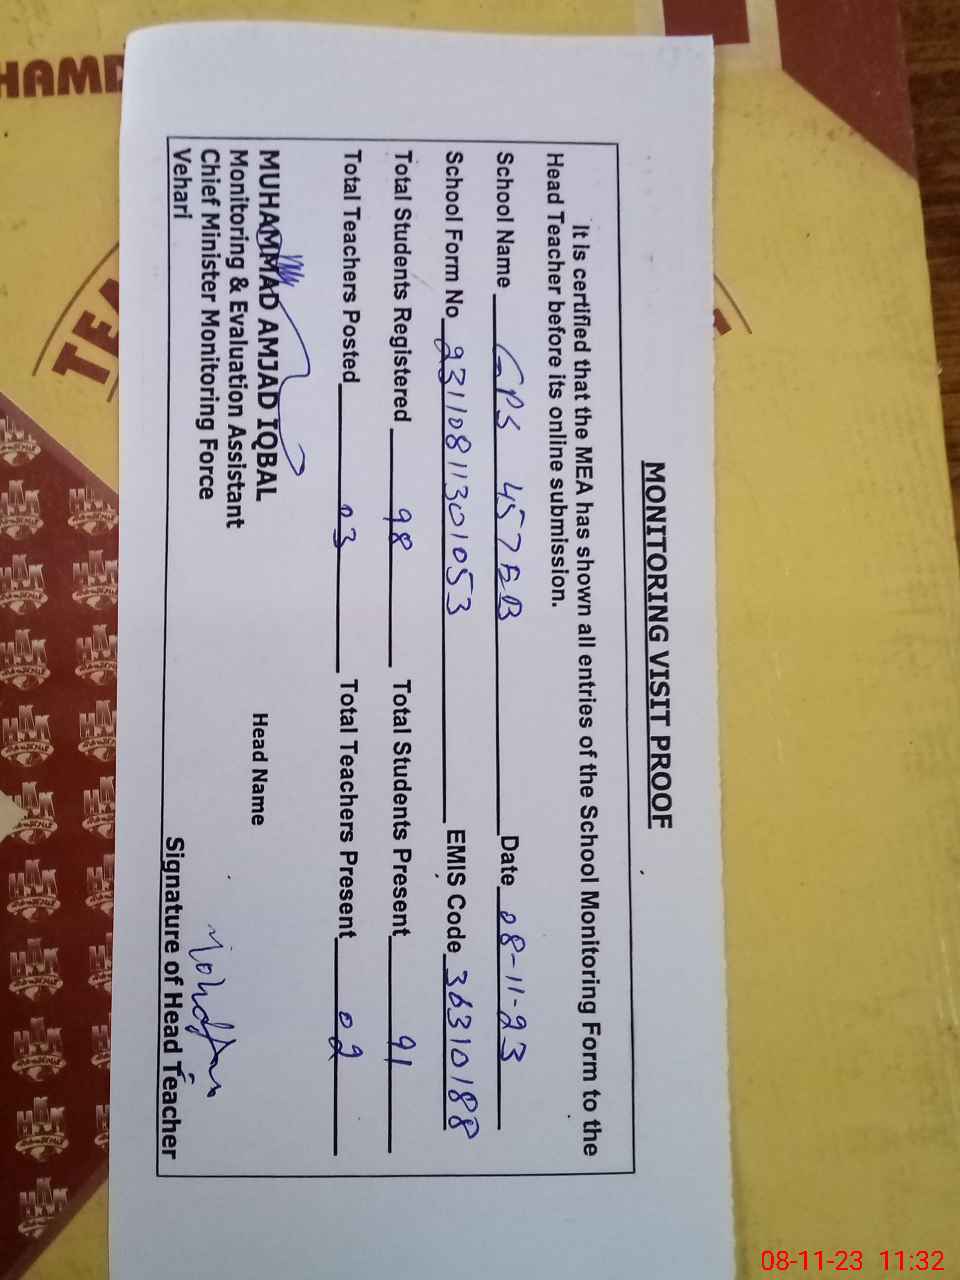 MONITORING VISIT PROOF
It is certified that the MEA has shown all entries of the School Monitoring Form to the
Head Teacher before its online submission.
School Name GPS 457EB Date 08-11-23
School Form No 23110811301053 EMIS Code 36310188
Total Students Registered 98 Total Students Present 91
Total Teachers Posted 03 Total Teachers Present 02
MUHAMMAD AMJAD IQBAL
Monitoring & Evaluation Assistant
Chief Minister Monitoring Force
Vehari
Head Name
Signature of Head Teacher
08-11-23 11:32